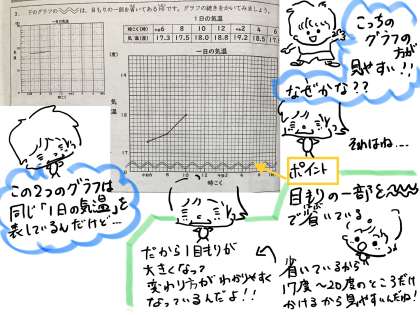 2. 下のグラフの〰は、目もりの一部を省いてある印です。グラフの続きをかいてみましょう。
1日の気温
時こく(時) 午前6 8 10 12 午後2 4 6
気温(度) 17.3 17.5 18.0 18.8 19.2 18.5
一日の気温
気温
時こく
こっちの
グラフの
方が
見やすい!!
なぜかな??
それはね…
この2つのグラフは
同じ「1日の気温」を
表しているんだけど…
ポイント
目もりの一部を〰
で省いている
だから1目もりが
大きくなって
変わり方がわかりやすく
なっているんだよ!!
省いているから
17度〜20度のところだけ
かけるから見やすいんだね!